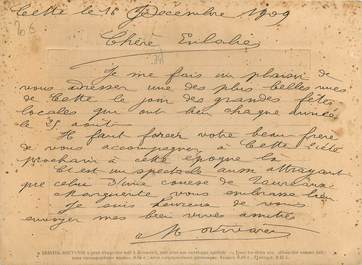 Cette le 16 Décembre 1909
Chère Eulalie
Je me fais un plaisir de
vous adresser une des plus belles vues
de Cette le jour des grandes fêtes
locales qui ont lieu chaque année
le 25 août.
Il faut forcer votre beau frère
de vous accompagner à Cette l'été
prochain à cette époque là
C'est un spectacle aussi attrayant
que celui d'une course de Taureaux
Marguerite vous embrasse bien
Je suis heureux de vous
envoyer mes bien vives amitiés